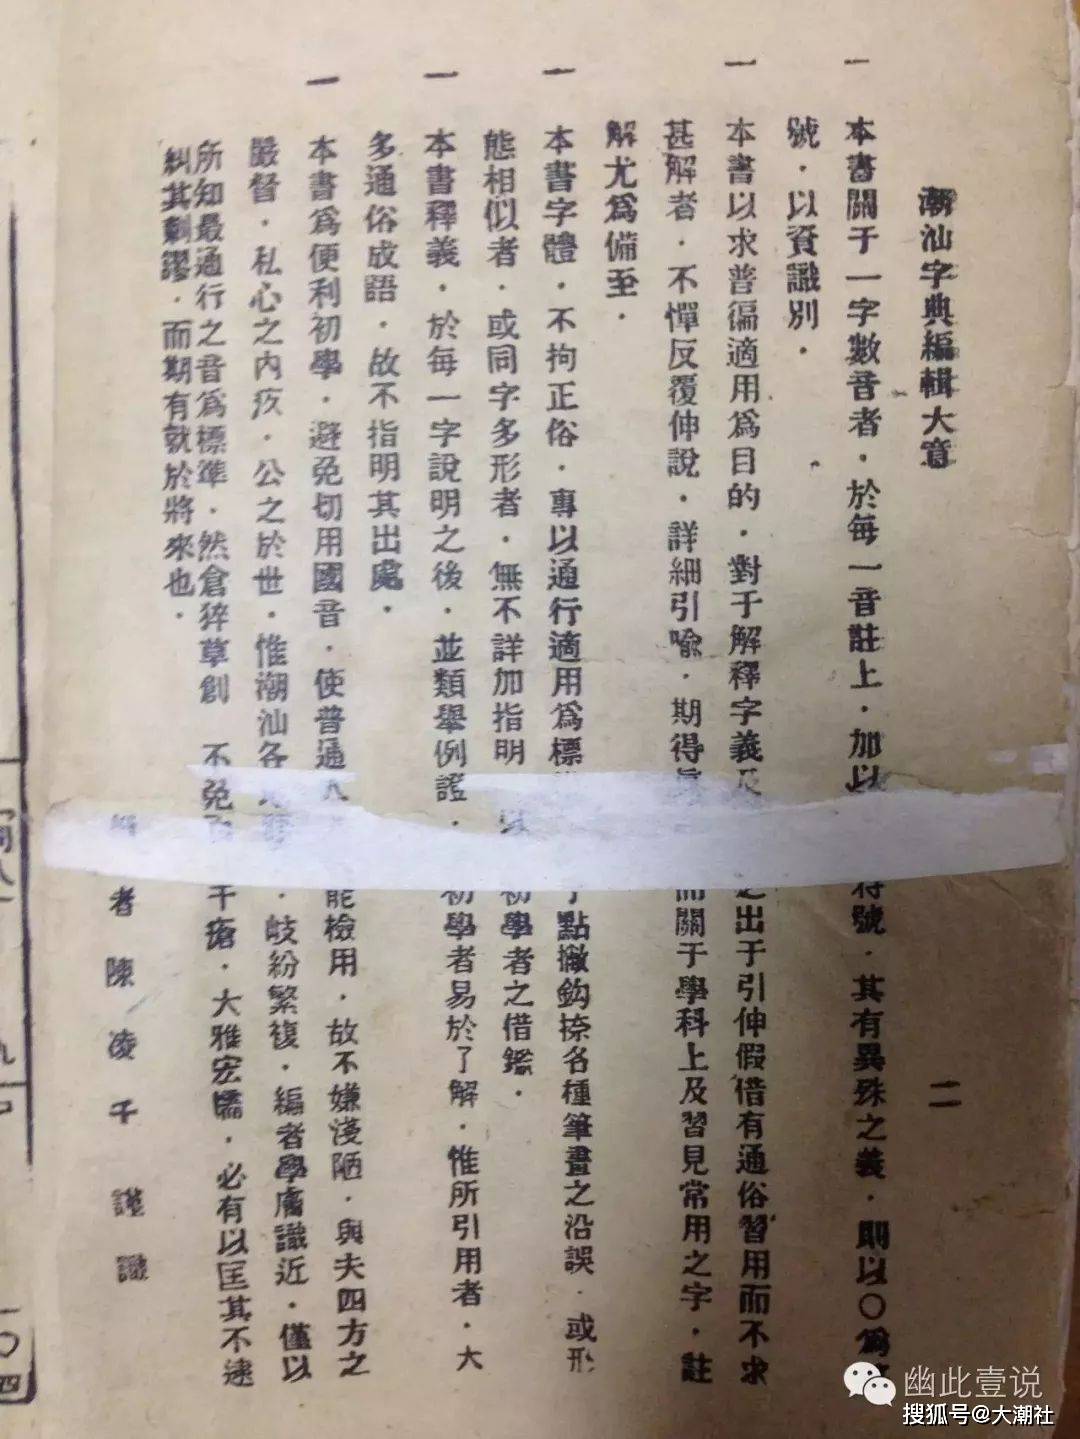 潮汕字典編輯大意
二
一 本書關于一字數音者．於每一音註上．加以符號．其有異殊之義．則以○為
號．以資識別．
一 本書以求普徧適用為目的．對于解釋字義及之出于引伸假借有通俗習用而不求
甚解者．不憚反覆伸說．詳細引喩．期得而關于學科上及習見常用之字．註
解尤為備至．
一 本書字體．不拘正俗．專以通行適用為標點撇鈎捺各種筆畫之沿誤．或形
態相似者．或同字多形者．無不詳加指明初學者之借鑑．
一 本書釋義．於每一字說明之後．並類舉例證．初學者易於了解．惟所引用者．大
多通俗成語．故不指明其出處．
一 本書為便利初學．避免切用國音．使普通人能檢用．故不嫌淺陋．與夫四方之
嚴督．私心之內疚．公之於世．惟潮汕各．歧紛繁複．編者學膚識近．僅以
所知最通行之音為標準．然倉猝草創 不免千瘡．大雅宏儒．必有以匡其不逮
糾其剌謬．而期有就於將來也．
者陳凌千謹識
一〇四
幽此壹说
搜狐号@大潮社